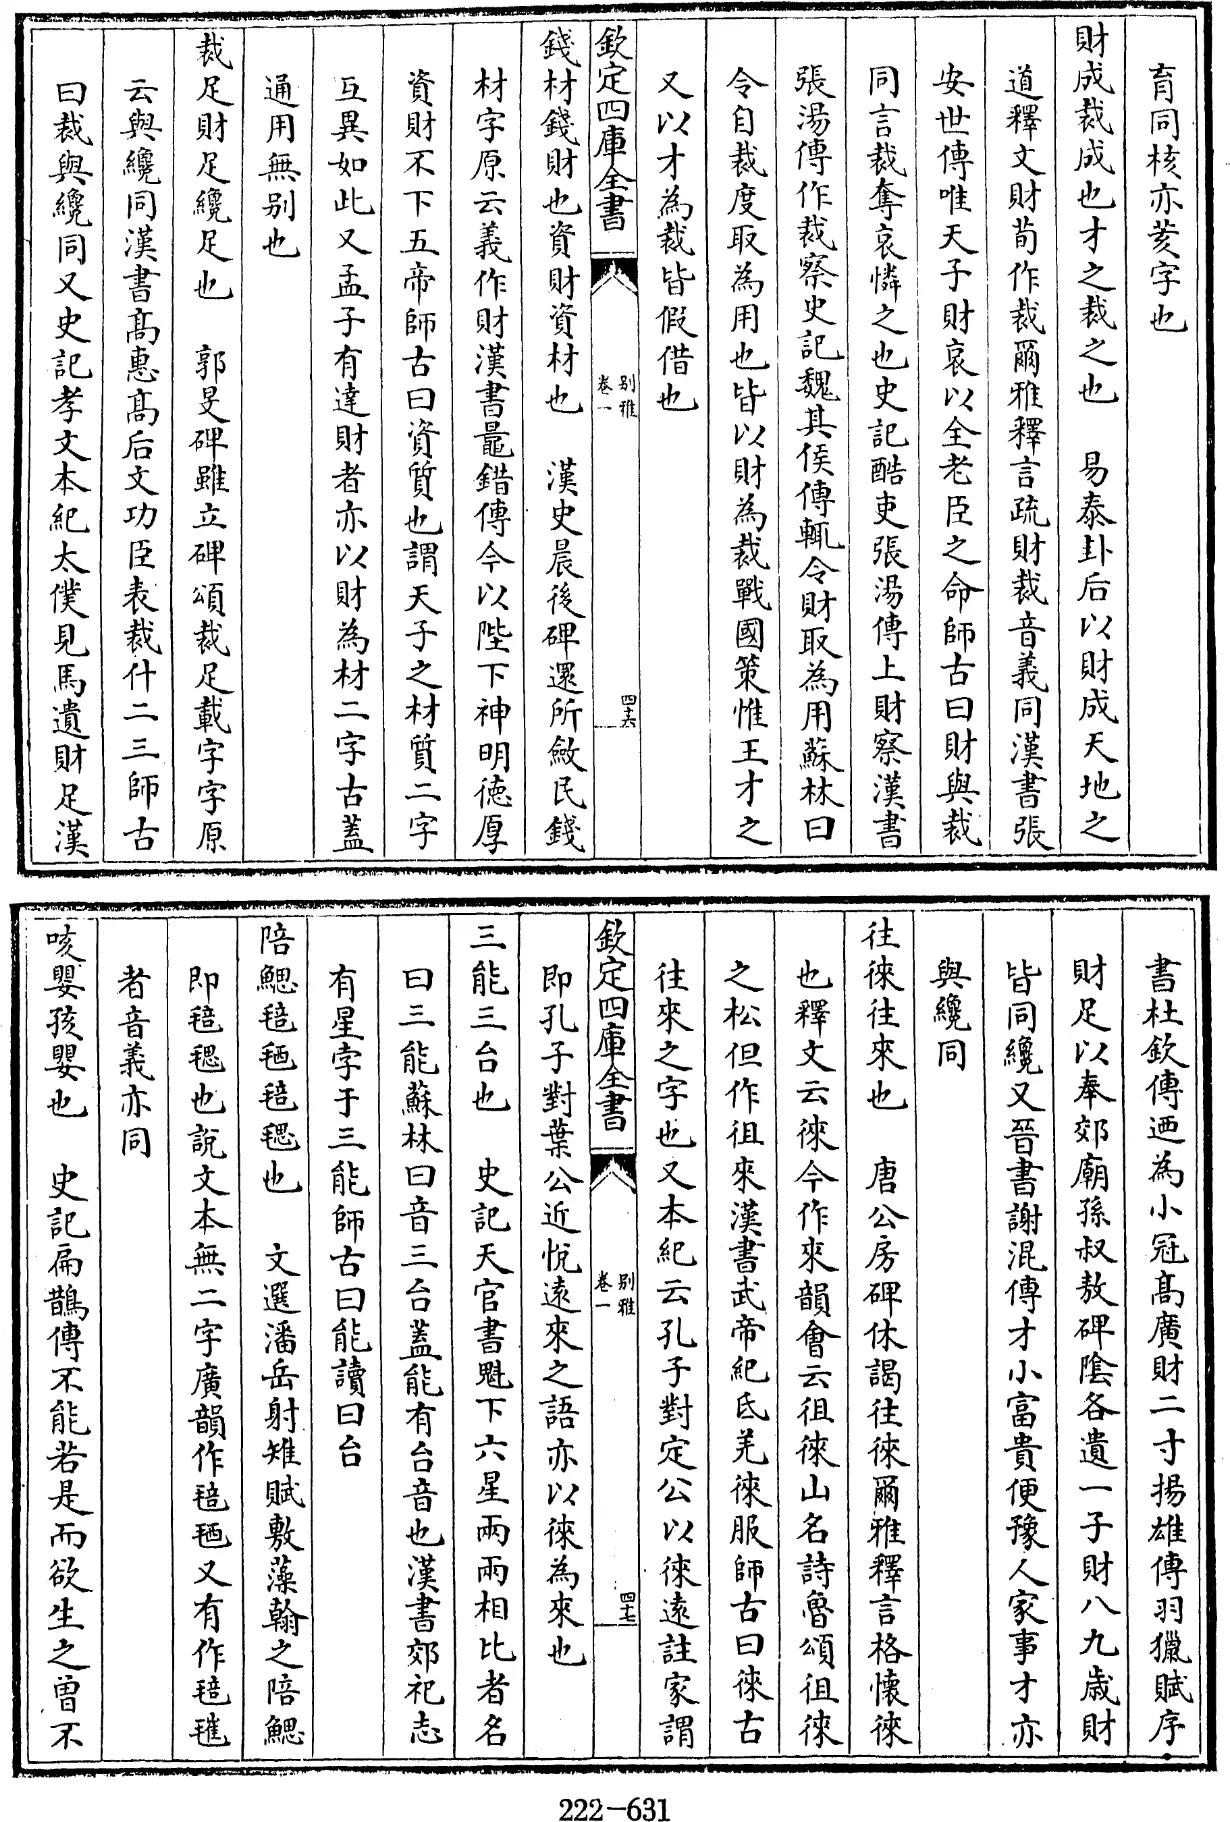 育同核亦荄字也
財成裁成也才之裁之也　易泰卦后以財成天地之
道釋文財荀作裁爾雅釋言疏財裁音義同漢書張
安世傳唯天子財哀以全老臣之命師古曰財與裁
同言裁奪哀憐之也史記酷吏張湯傳上財察漢書
張湯傳作裁察史記魏其侯傳輒令財取為用蘇林曰
令自裁度取為用也皆以財為裁戰國策惟王才之
又以才為裁皆假借也
欽定四庫全書
别雅
卷一
四十六
錢材錢財也資財資材也　漢史晨後碑還所斂民錢
材字原云義作財漢書鼂錯傳今以陛下神明德厚
資財不下五帝師古曰資質也謂天子之材質二字
互異如此又孟子有達財者亦以財為材二字古蓋
通用無别也
裁足財足纔足也　郭旻碑雖立碑頌裁足載字字原
云與纔同漢書髙惠髙后文功臣表裁什二三師古
曰裁與纔同又史記孝文本紀太僕見馬遺財足漢
書杜欽傳迺為小冠髙廣財二寸揚雄傳羽獵賦序
財足以奉郊廟孫叔敖碑陰各遺一子財八九歳財
皆同纔又晉書謝混傳才小富貴便豫人家事才亦
與纔同
往徠往來也　唐公房碑休謁往徠爾雅釋言格懷徠
也釋文云徠今作來韻會云徂徠山名詩魯頌徂徠
之松但作徂來漢書武帝紀氐羌徠服師古曰徠古
往來之字也又本紀云孔子對定公以徠遠註家謂
欽定四庫全書
别雅
卷一
四十七
即孔子對葉公近悅遠來之語亦以徠為來也
三能三台也　史記天官書魁下六星兩兩相比者名
曰三能蘇林曰音三台蓋能有台音也漢書郊祀志
有星孛于三能師古曰能讀曰台
陪鰓毰毸毰毢也　文選潘岳射雉賦敷藻翰之陪鰓
即毰毸也說文本無二字廣韻作毰毸又有作毰毢
者音義亦同
咳嬰孩嬰也　史記扁鵲傳不能若是而欲生之曽不
222-631